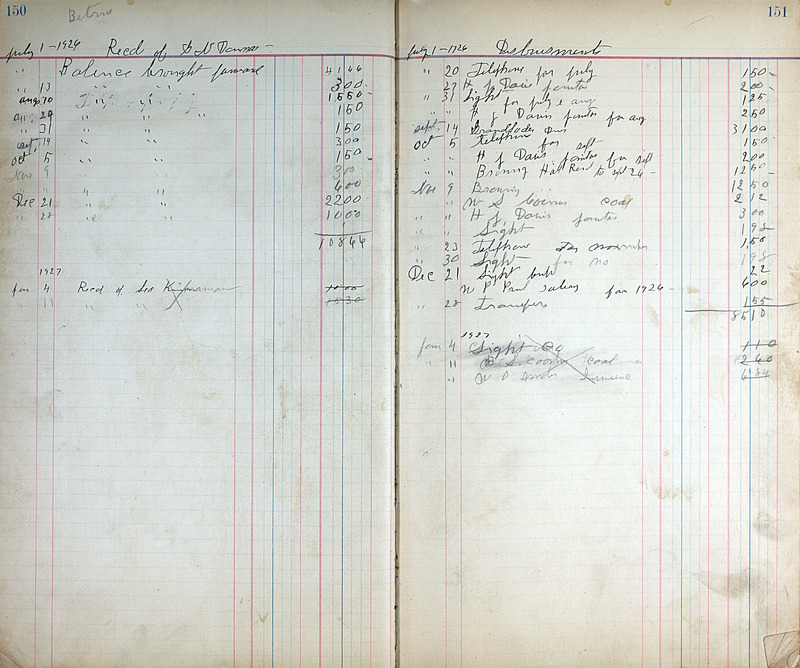 150
July 1 - 1926 Recd of
Balance brought forward 4166
" 13 " " " 300
Aug 10 1550
" 24 " " 150
" 31 " " 150
Sept 14 " " 300
Oct 5 " " 150
Nov 9 300
" " 400
Dec 21 " " 2200
" 28 " " 1000
10844
1927
Jan 4 Recd of Geo 1000
" 11 " " " 1030
151
July 1 - 1926 Disbursments
" 20 Telephone for July 150
" 27 H J Davis Janitor 200
" 31 Light for July & aug 125
" " H J Davis Janitor for aug 250
Sept. 14 Grand Lodge Dues 3100
Oct 5 Telephone for Sept 150
" " H J Davis Janitor for Sept 200
" " Hall Rent to Sept 26 - 1250
Nov 9 1250
" W S coal 212
" " H J, Davis janitor 300
" " Light 198
" 23 Telephone November 150
" 30 Light for No 198
Dec 21 Light 22
W P Paul Salary for 1926 - 600
" 28 Transfers 155
8510
1927
Jan 4 Light Co 110
" " W S coal 240
" W P 634